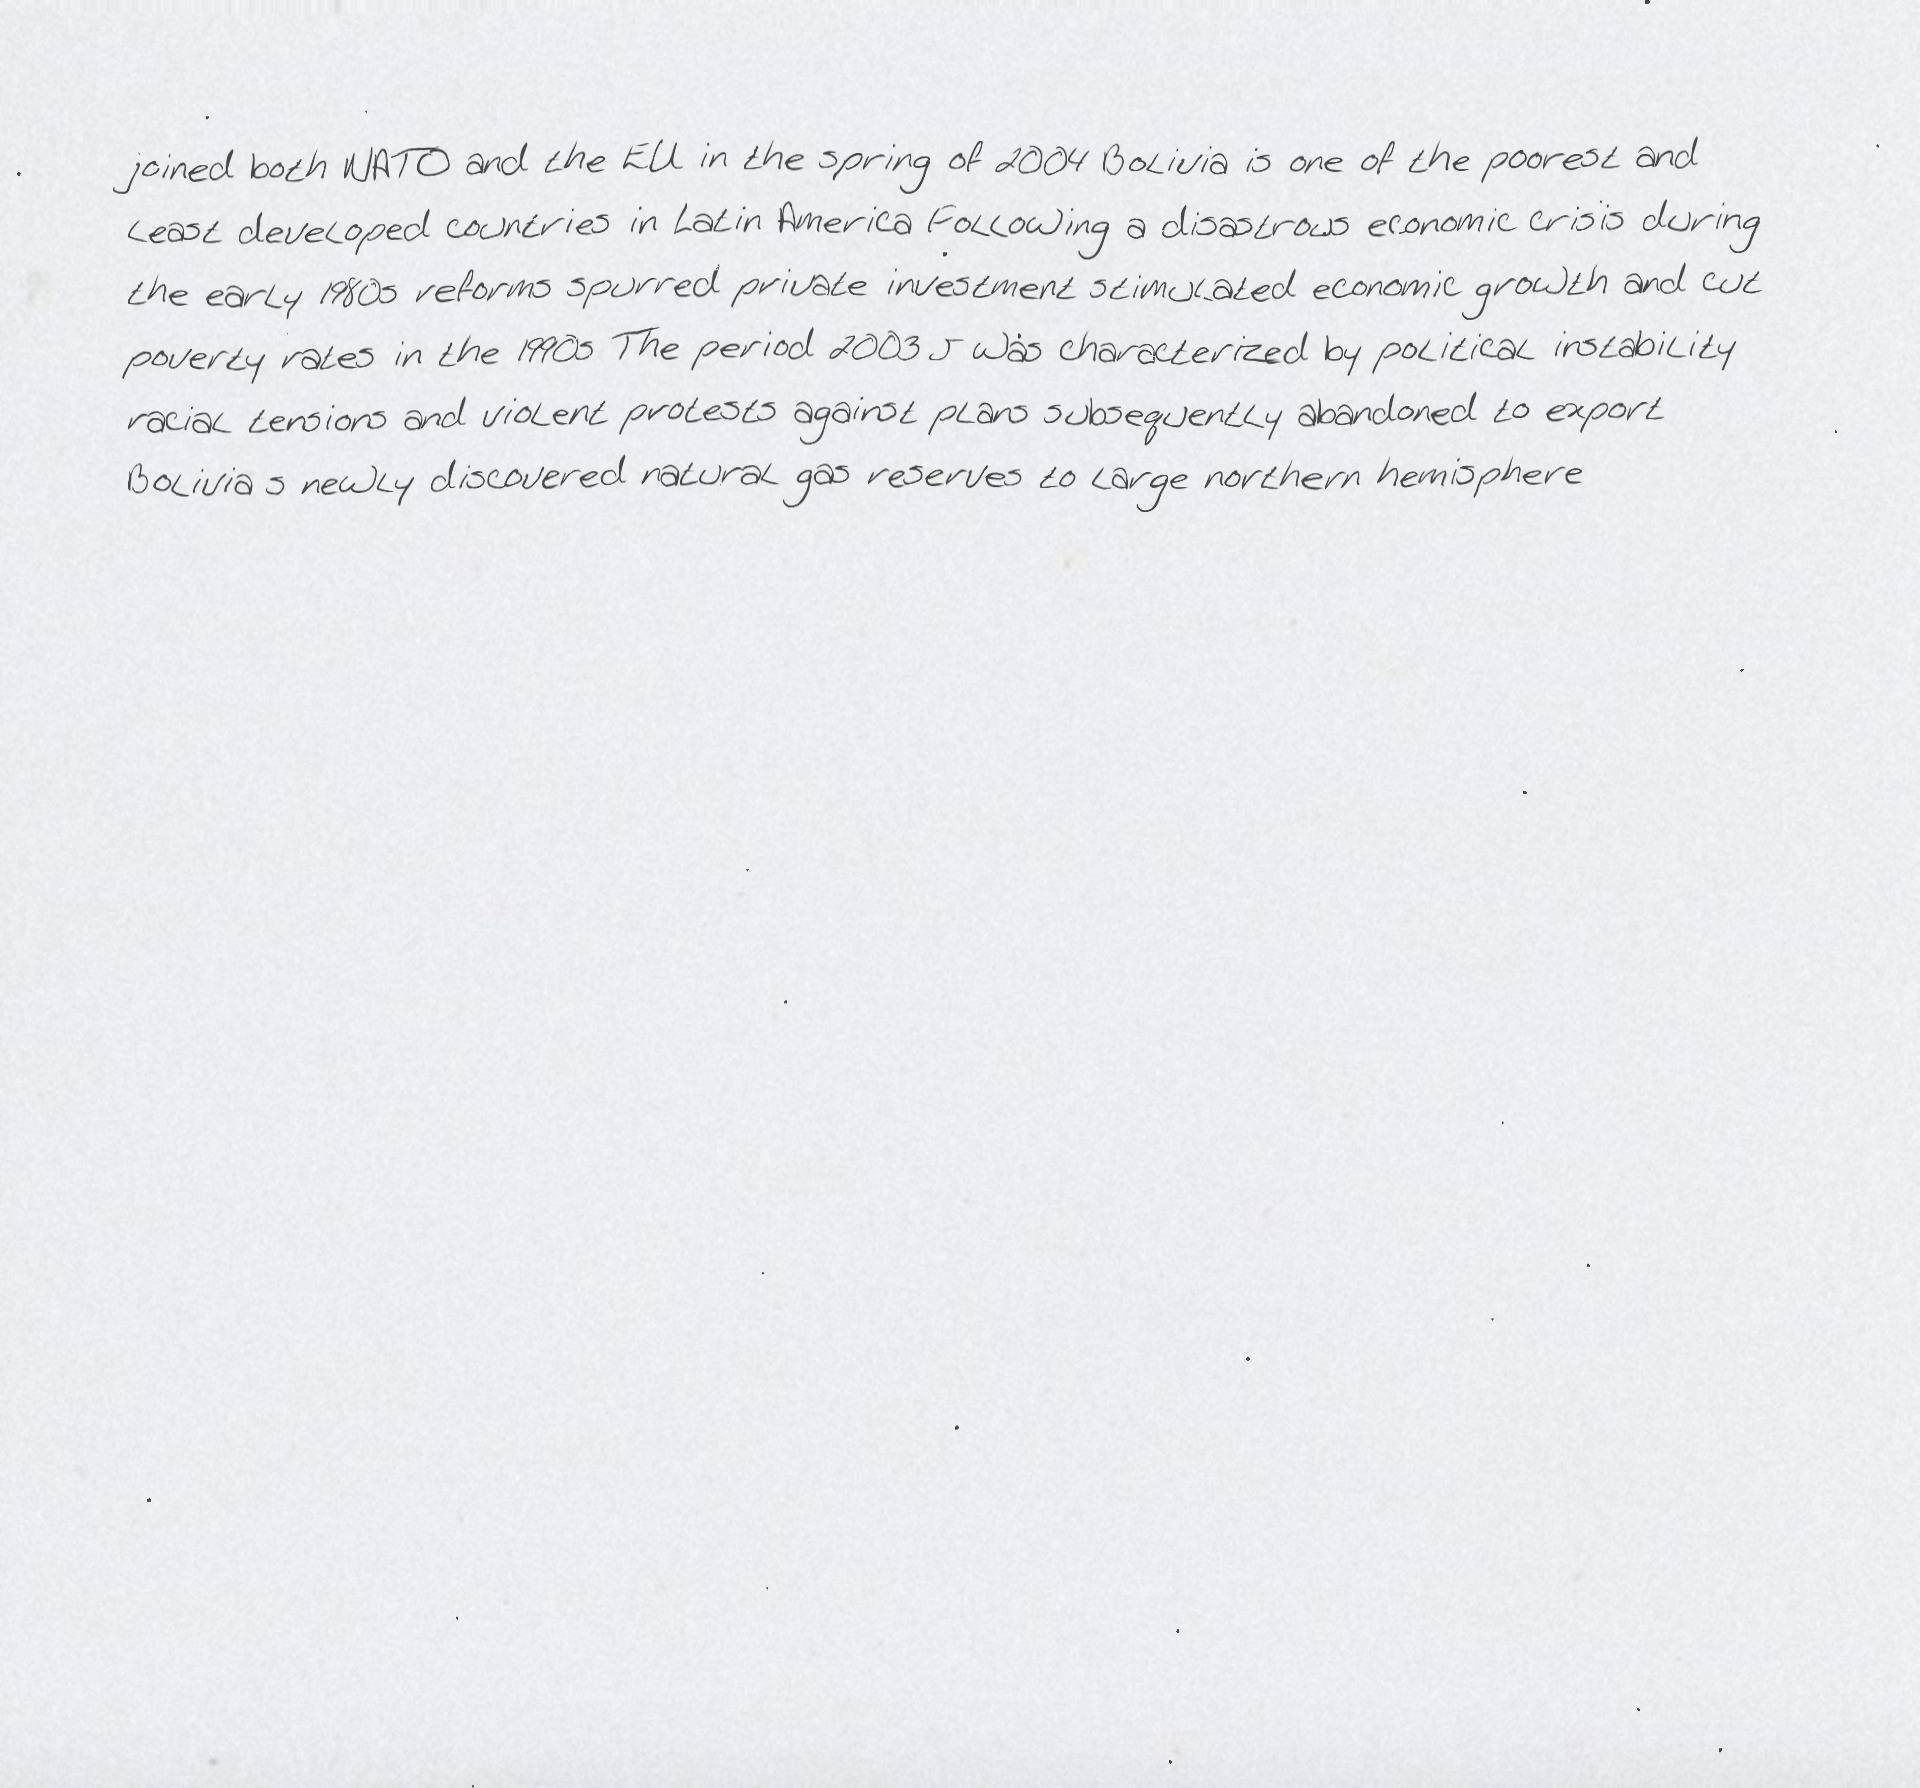 joined both NATO and the EU in the spring of 2004 Bolivia is one of the poorest and
least developed countries in Latin America Following a disastrous economic crisis during
the early 1980s reforms spurred private investment stimulated economic growth and cut
poverty rates in the 1990s The period 2003 5 was characterized by political instability
racial tensions and violent protests against plans subsequently abandoned to export
Bolivia s newly discovered natural gas reserves to large northern hemisphere